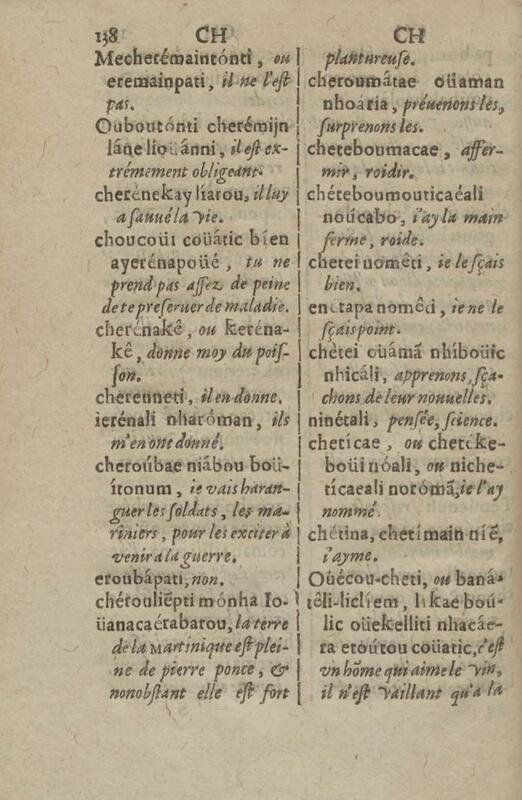 138 CH
Mecherémaintónti, ou
eremainpati, il ne l'est
pas.
Ouboutónti cherémijn
láne lioüánni, il est ex-
trémement obligeant.
cherénekay líarou, il luy
a sauué la vie.
choucoüi coüátic bíen
ayerénapoüé, tu ne
prend pas assez de peine
de te preseruer de maladie.
cherénakê, ou keréna-
kê, donne moy du pois-
son.
chereuneti, il en donne.
ierénali nharóman, ils
m'en ont donné.
cheroúbae niábou boü-
ítonum, ie vais haran-
guer les soldats, les ma-
riniers, pour les exciter à
venir a la guerre.
eroubápati, non.
chérouliẽpti mónha Io-
üanacaérabarou, la terre
de la Martinique est plei-
ne de pierre ponce, &
nonobstant elle est fort
CH
plantureuse.
cheroumátae oüaman
nhoária, préuenons les,
surprenons les.
cheteboumacae, affer-
mir, roidir.
chéteboumouticaéali
noúcabo, i'ay la main
ferme, roide.
chetei nomêti, ie le sçais
bien.
enetapa nomêti, ie ne le
sçais point.
chètei oüámã nhíboüic
nhicáli, apprenons, sça-
chons de leur nouuelles.
ninétali, pensée, science.
cheticae, ou chetéke-
boüi nóali, ou niche-
tícaeali norómã, ie l'ay
nommé.
chétina, chetímain níẽ,
i'ayme.
Oüécou-cheti, ou baná-
têli-licliem, likae boú-
lic oüekelliti nhacáe-
ra etoútou coüatic, c'est
vn hõme qui aime le vin,
il n'est vaillant qu'a la